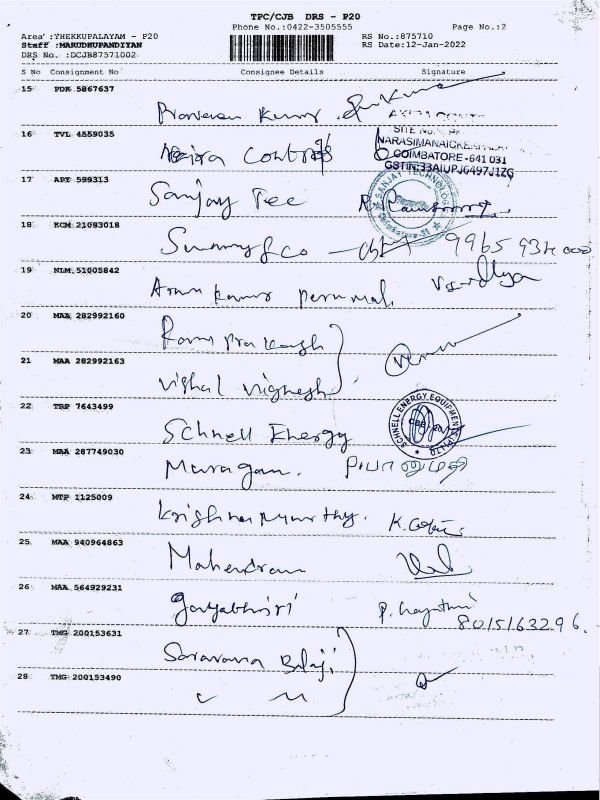 TPC/CJB DRS - P20
Phone No.:0422-3505555 Page No.:2
Area :THEKKUPALAYAM - P20 RS No.:875710
Staff :MARUDHUPANDIYAN RS Date:12-Jan-2022
DRS No. :DCJB87571002
S No Consignment No Consignee Details Signature
15 PDK 5867637
Praveen Kumar
16 TVL 4559035
SITE No.
NARASIMANAICKENPALAYAM
COIMBATORE-641 031
GSTIN:33AIUPJ6497J1ZG
17 APY 599313
Sanjay Tec
SANJAY TECHNOLOG
18 KCM 21093018
Summy & co
19 NLM 51005842
Arun Kumar perumal
20 MAA 282992160
Ram Prakash
21 MAA 282992163
Vishal Vignesh
22 TRP 7643499
Schnell Energy
SCHNELL ENERGY EQUIPMENTS
23 MAA 287749030
Murugan.
24 MTP 1125009
Krishnamurthy.
25 MAA 940964863
Mahendran
26 MAA 564929231
Gayathiri
8015163296.
27 TMG 200153631
Saravana Balaji
28 TMG 200153490